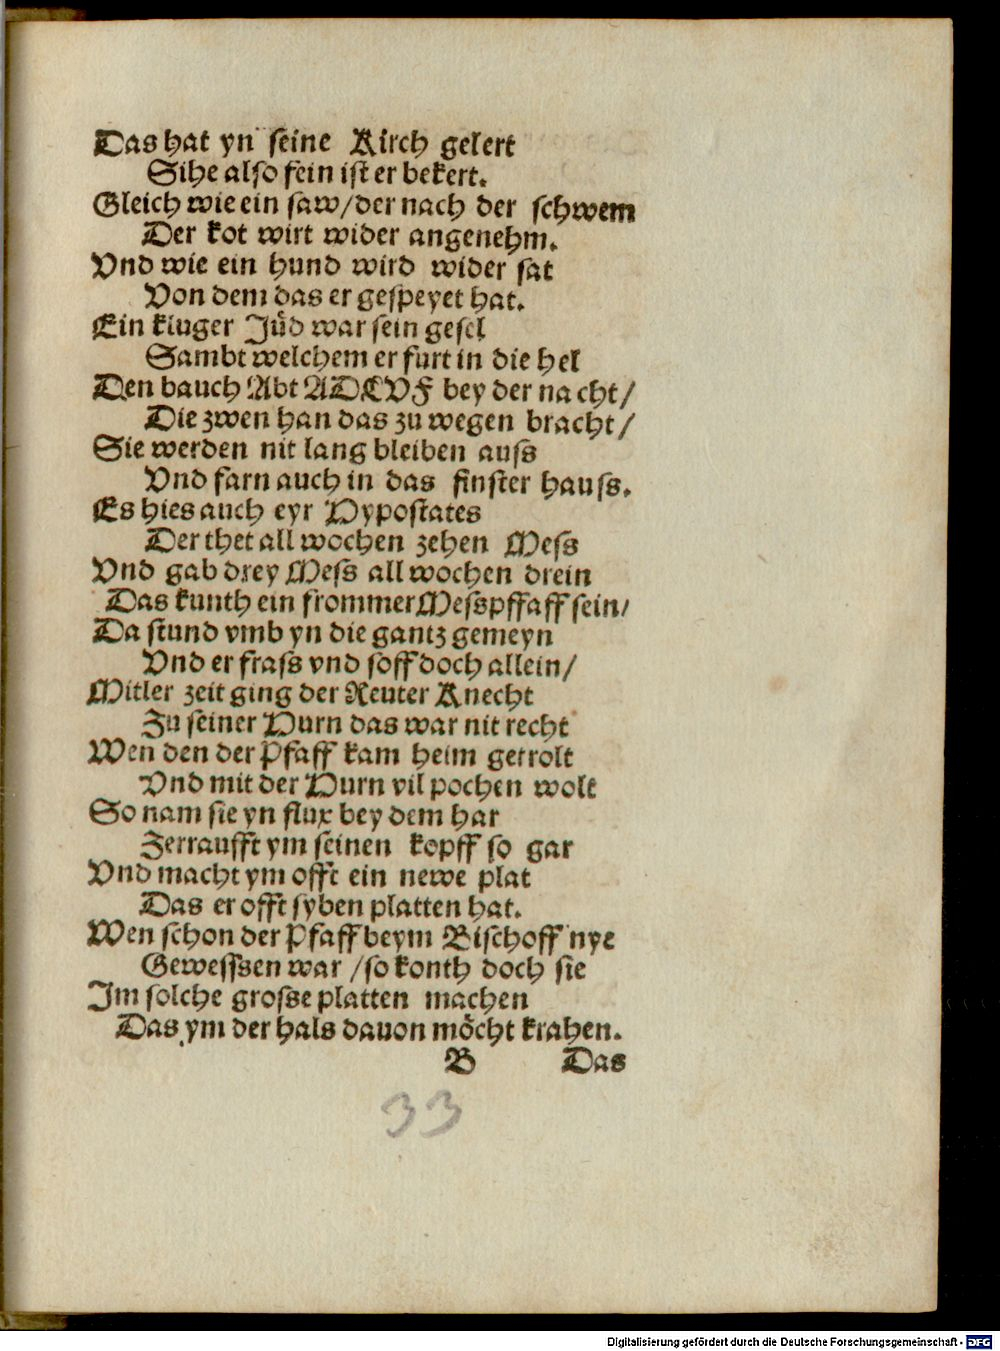 Das hat yn seine Kirch gelert
Sihe also fein ist er bekert.
Gleich wie ein saw/der nach der schwem
Der kot wirt wider angenehm.
Vnd wie ein hund wird wider sat
Von dem das er gespeyet hat.
Ein kluger Jüd war sein gesel
Sambt welchem er furt in die hel
Den bauch Abt ADLVF bey der nacht/
Die zwen han das zu wegen bracht/
Sie werden nit lang bleiben auss
Vnd farn auch in das finster hauss.
Es hies auch eyr Hypostates
Der thet all wochen zehen Mess
Vnd gab drey Mess all wochen drein
Das kunth ein frommer Messpffaff sein/
Da stund vmb yn die gantz gemeyn
Vnd er frass vnd soff doch allein/
Mitler zeit ging der Reuter Knecht
Zu seiner Hurn das war nit recht
Wen den der Pfaff kam heim getrolt
Vnd mit der Hurn vil pochen wolt
So nam sie yn flux bey dem har
Zerraufft ym seinen kopff so gar
Vnd macht ym offt ein newe plat
Das er offt syben platten hat.
Wen schon der Pfaff beym Bischoff nye
Gewesssen war /so konth doch sie
Im solche grosse platten machen
Das ym der hals dauon möcht krahen.
B Das
33
Digitalisierung gefördert durch die Deutsche Forschungsgemeinschaft - DFG